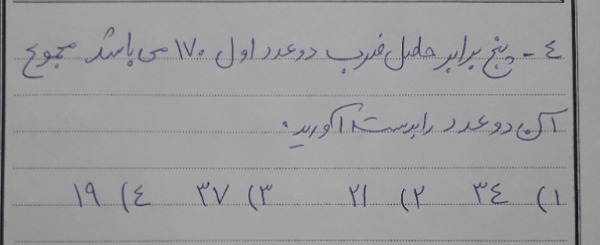 ٤ - پنج برابر حاصل ضرب دو عدد اول ۱۷۰ می باشد مجموع
آن دو عدد را بدست آورید.
۱) ۳٤ ۲) ۲۱ ۳) ۳۷ ٤) ۱۹